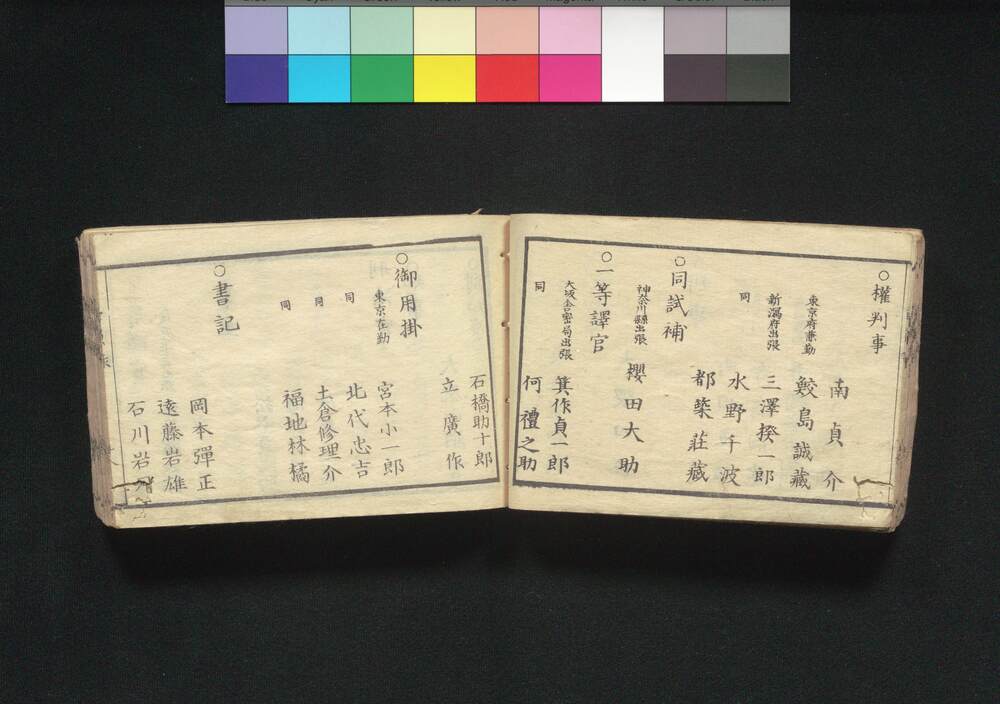 ○權判事
南貞介
東京府兼勤 鮫島誠藏
新潟府出張 三澤揆一郎
同 水野千波
都築莊藏
○同試補
神奈川縣出張 櫻田大助
○一等譯官
大坂舎密局出張 箕作貞一郎
同 何禮之助
石橋助十郎
立廣作
○御用掛
東京在勤 宮本小一郎
同 北代忠吉
同 土倉修理介
同 福地林橘
○書記
岡本彈正
遠藤岩雄
石川岩